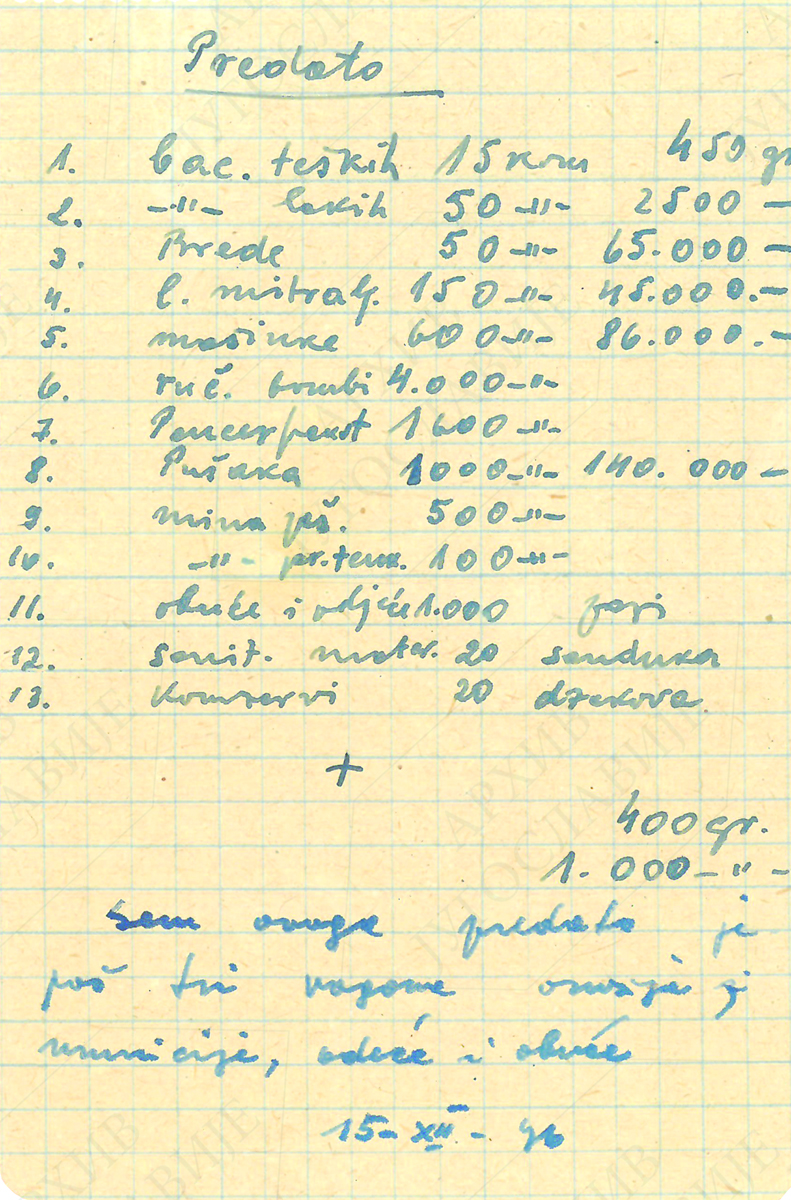 Predato
1. bac. teških 15 kom 450 gr
2. -"- lakih 50 -"- 2500 -
3. Brede 50 -"- 65.000 -
4. l. mitralj. 150 -"- 45.000.-
5. mašinke 600 -"- 86.000.-
6. ruč. bombi 4.000 -"-
7. Pancerfaust 1600 -"-
8. Pušaka 1000 -"- 140.000 -
9. mina pš. 500 -"-
10. -"- pr.tenk. 100 -"-
11. obuće i odjeće 1.000 pari
12. sanit. mater. 20 sanduka
13. Konzervi 20 džakova
+
400 gr.
1.000 -"-
Sem ovoga predato je
još tri vagona oružja i
municije, odeće i obuće
15-XII-